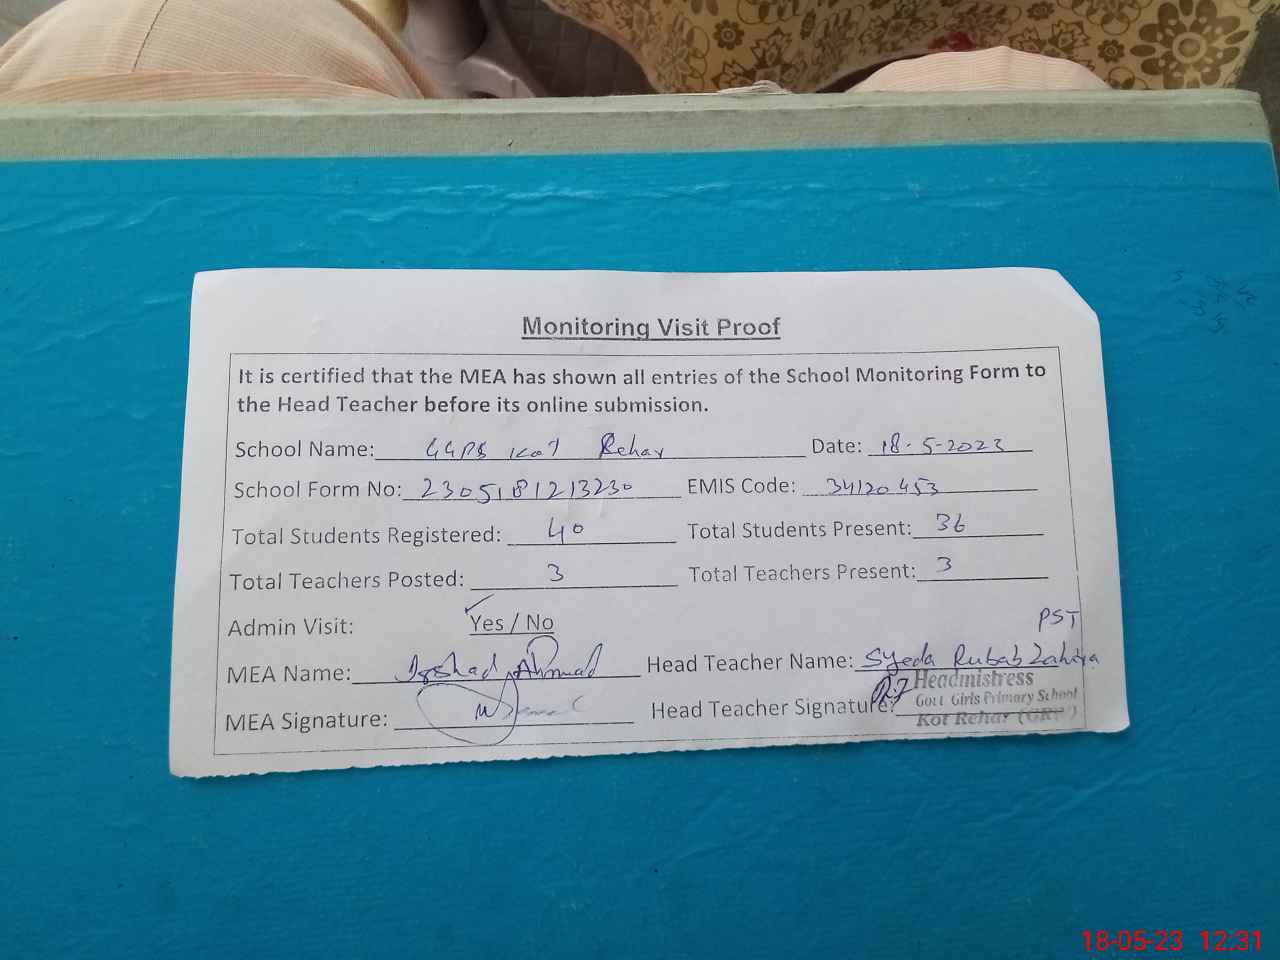 Monitoring Visit Proof
It is certified that the MEA has shown all entries of the School Monitoring Form to
the Head Teacher before its online submission.
School Name: GGPS Kot Rehar Date: 18-5-2023
School Form No: 2305181213230 EMIS Code: 34120453
Total Students Registered: 40 Total Students Present: 36
Total Teachers Posted: 3 Total Teachers Present: 3
Admin Visit: Yes / No
PST
MEA Name: Irshad Ahmad Head Teacher Name: Syeda Rubab Zahra
MEA Signature: Head Teacher Signature:
Headmistress
Govt. Girls Primary School
Kot Rehar (GRW)
18-05-23 12:31